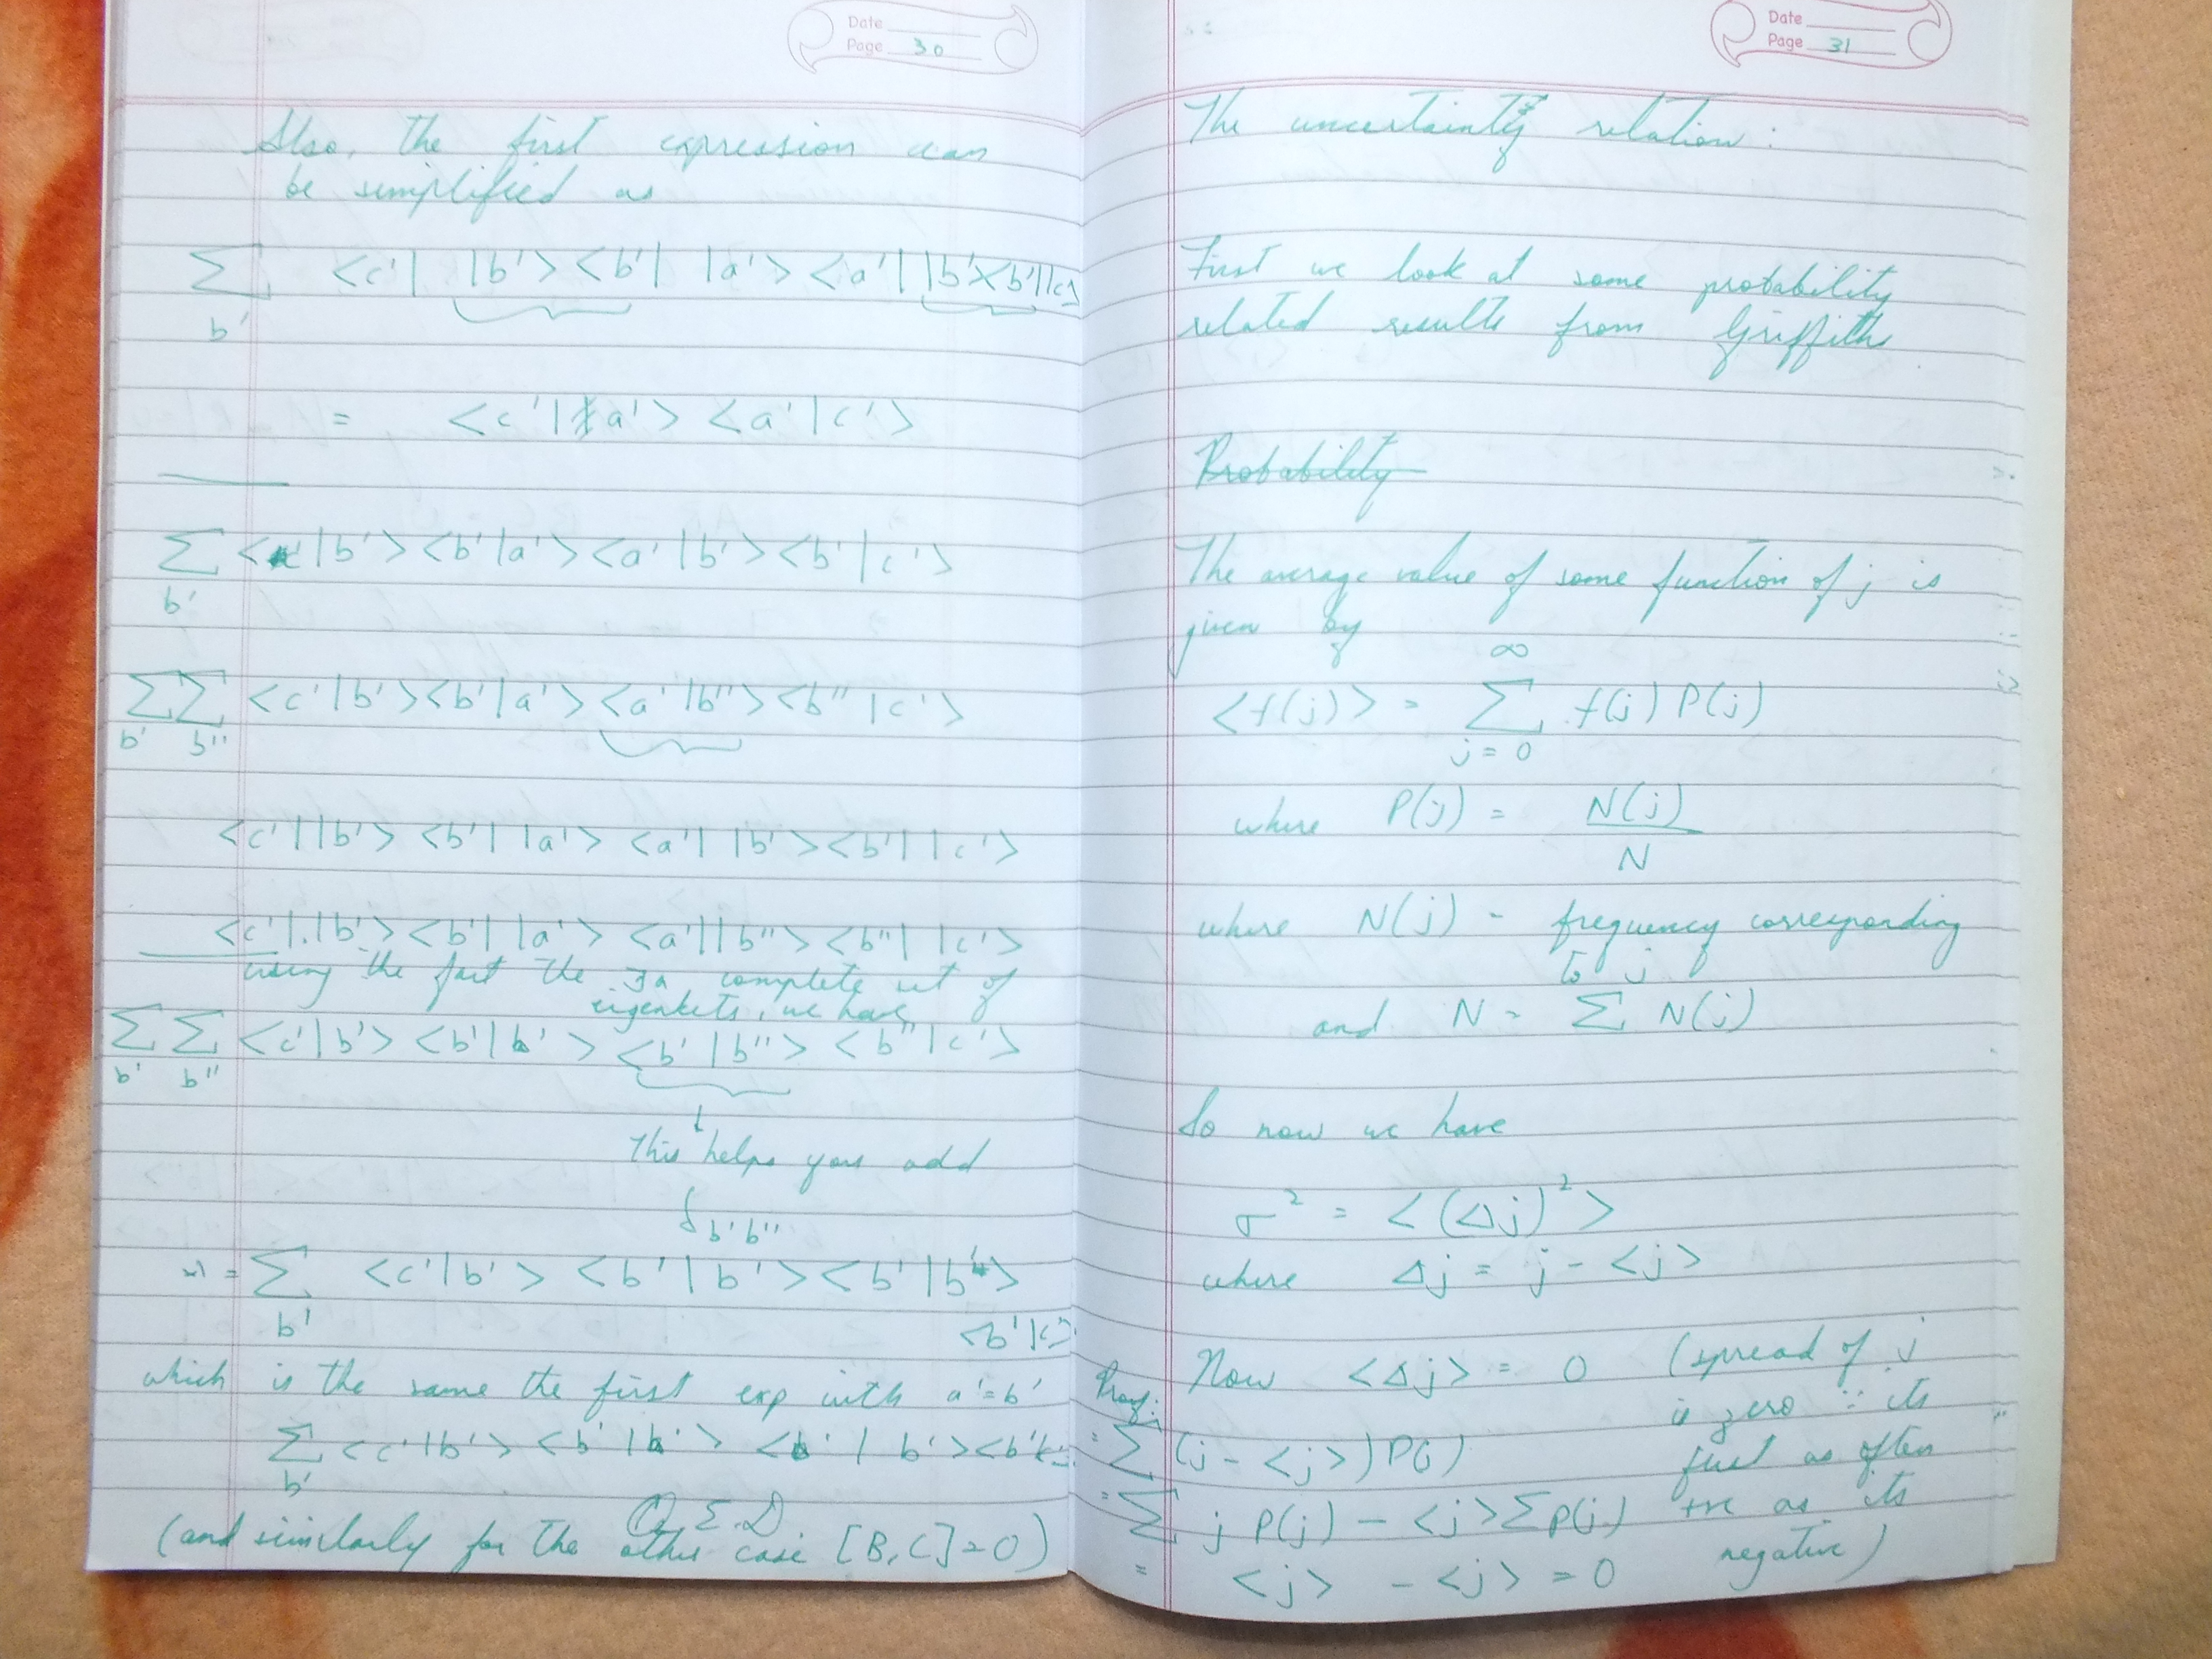 Date
Page 30
Also, the first expression can
be simplified as
Σ <c'| |b'> <b'| |a'> <a'| |b'><b'||c'>
b'
= <c'|a'> <a'|c'>
Σ < |b'> <b'|a'> <a'|b'> <b'|c'>
b'
ΣΣ <c'|b'> <b'|a'> <a'|b''> <b''|c'>
b' b''
<c'| |b'> <b'| |a'> <a'| |b'> <b'| |c'>
<c'|.|b'> <b'| |a'> <a'| |b''> <b''| |c'>
using the fact the ∃ a complete set of
eigenkets, we have
Σ Σ <c'|b'> <b'|b'> <b'|b''> <b''|c'>
b' b''
↓
This helps you add
δb'b''
= Σ <c'|b'> <b'|b'> <b'|b'>
b' <b'|c'>
which is the same the first exp with a'=b'
Σ <c'|b'> <b'|b'> <b'|b'> <b'|c'>
b'
Q.E.D
(and similarly for the other case [B,C]=0)
Date
Page 31
The uncertainty relation:
First we look at some probability
related results from Griffiths.
Probability
The average value of some function of j is
given by
∞
<f(j)> = Σ f(j) P(j)
j = 0
where P(j) = N(j)
N
where N(j) - frequency corresponding
to j
and N = Σ N(j)
So now we have
σ² = <(Δj)²>
where Δj = j - <j>
Now <Δj> = 0 (spread of j
Proof: is zero ∵ its
= Σ (j - <j>) P(j) just as often
= Σ j P(j) - <j> Σ P(j) +ve as its
negative)
= <j> - <j> = 0